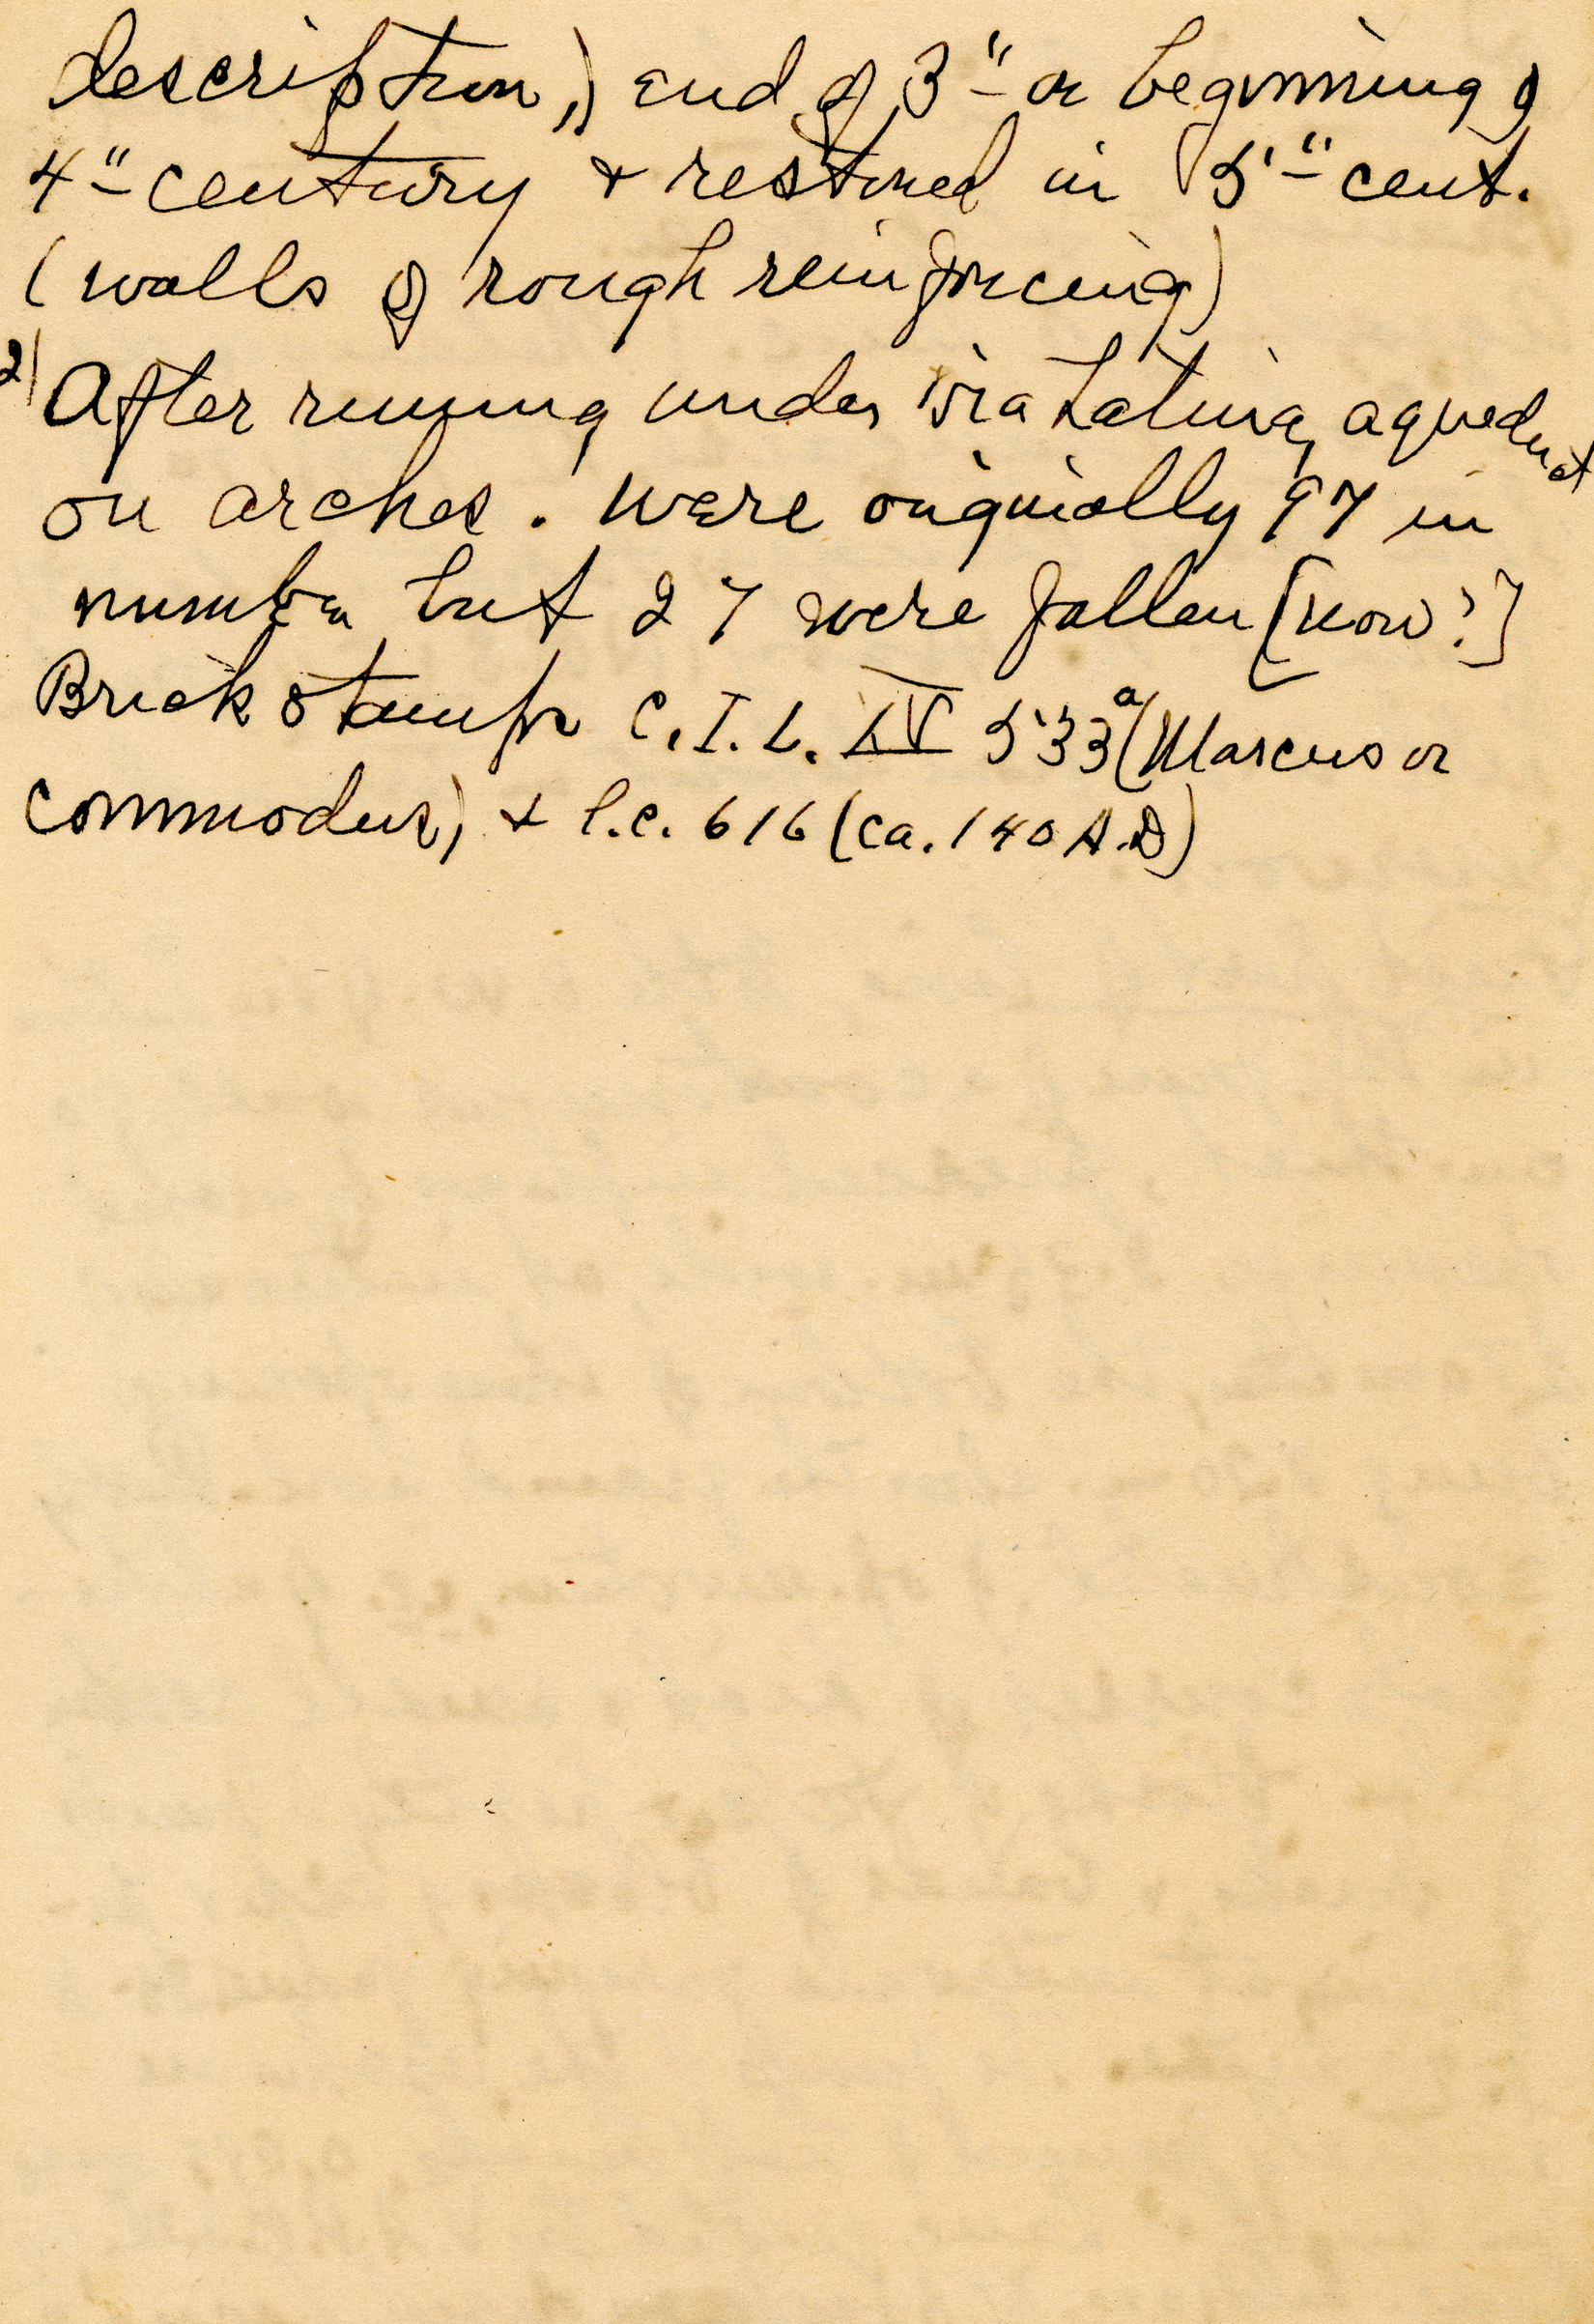 description,) end of 3" or beginning of
4" century & restored in 5" cent.
(walls of rough reinforcing)
2) After running under via Latina, aqueduct
on arches. Were originally 97 in
number but 27 were fallen [now?]
Brick stamps C.I.L. XV 533a (Marcus or
Commodus) & l.c. 616 (ca. 140 A.D)